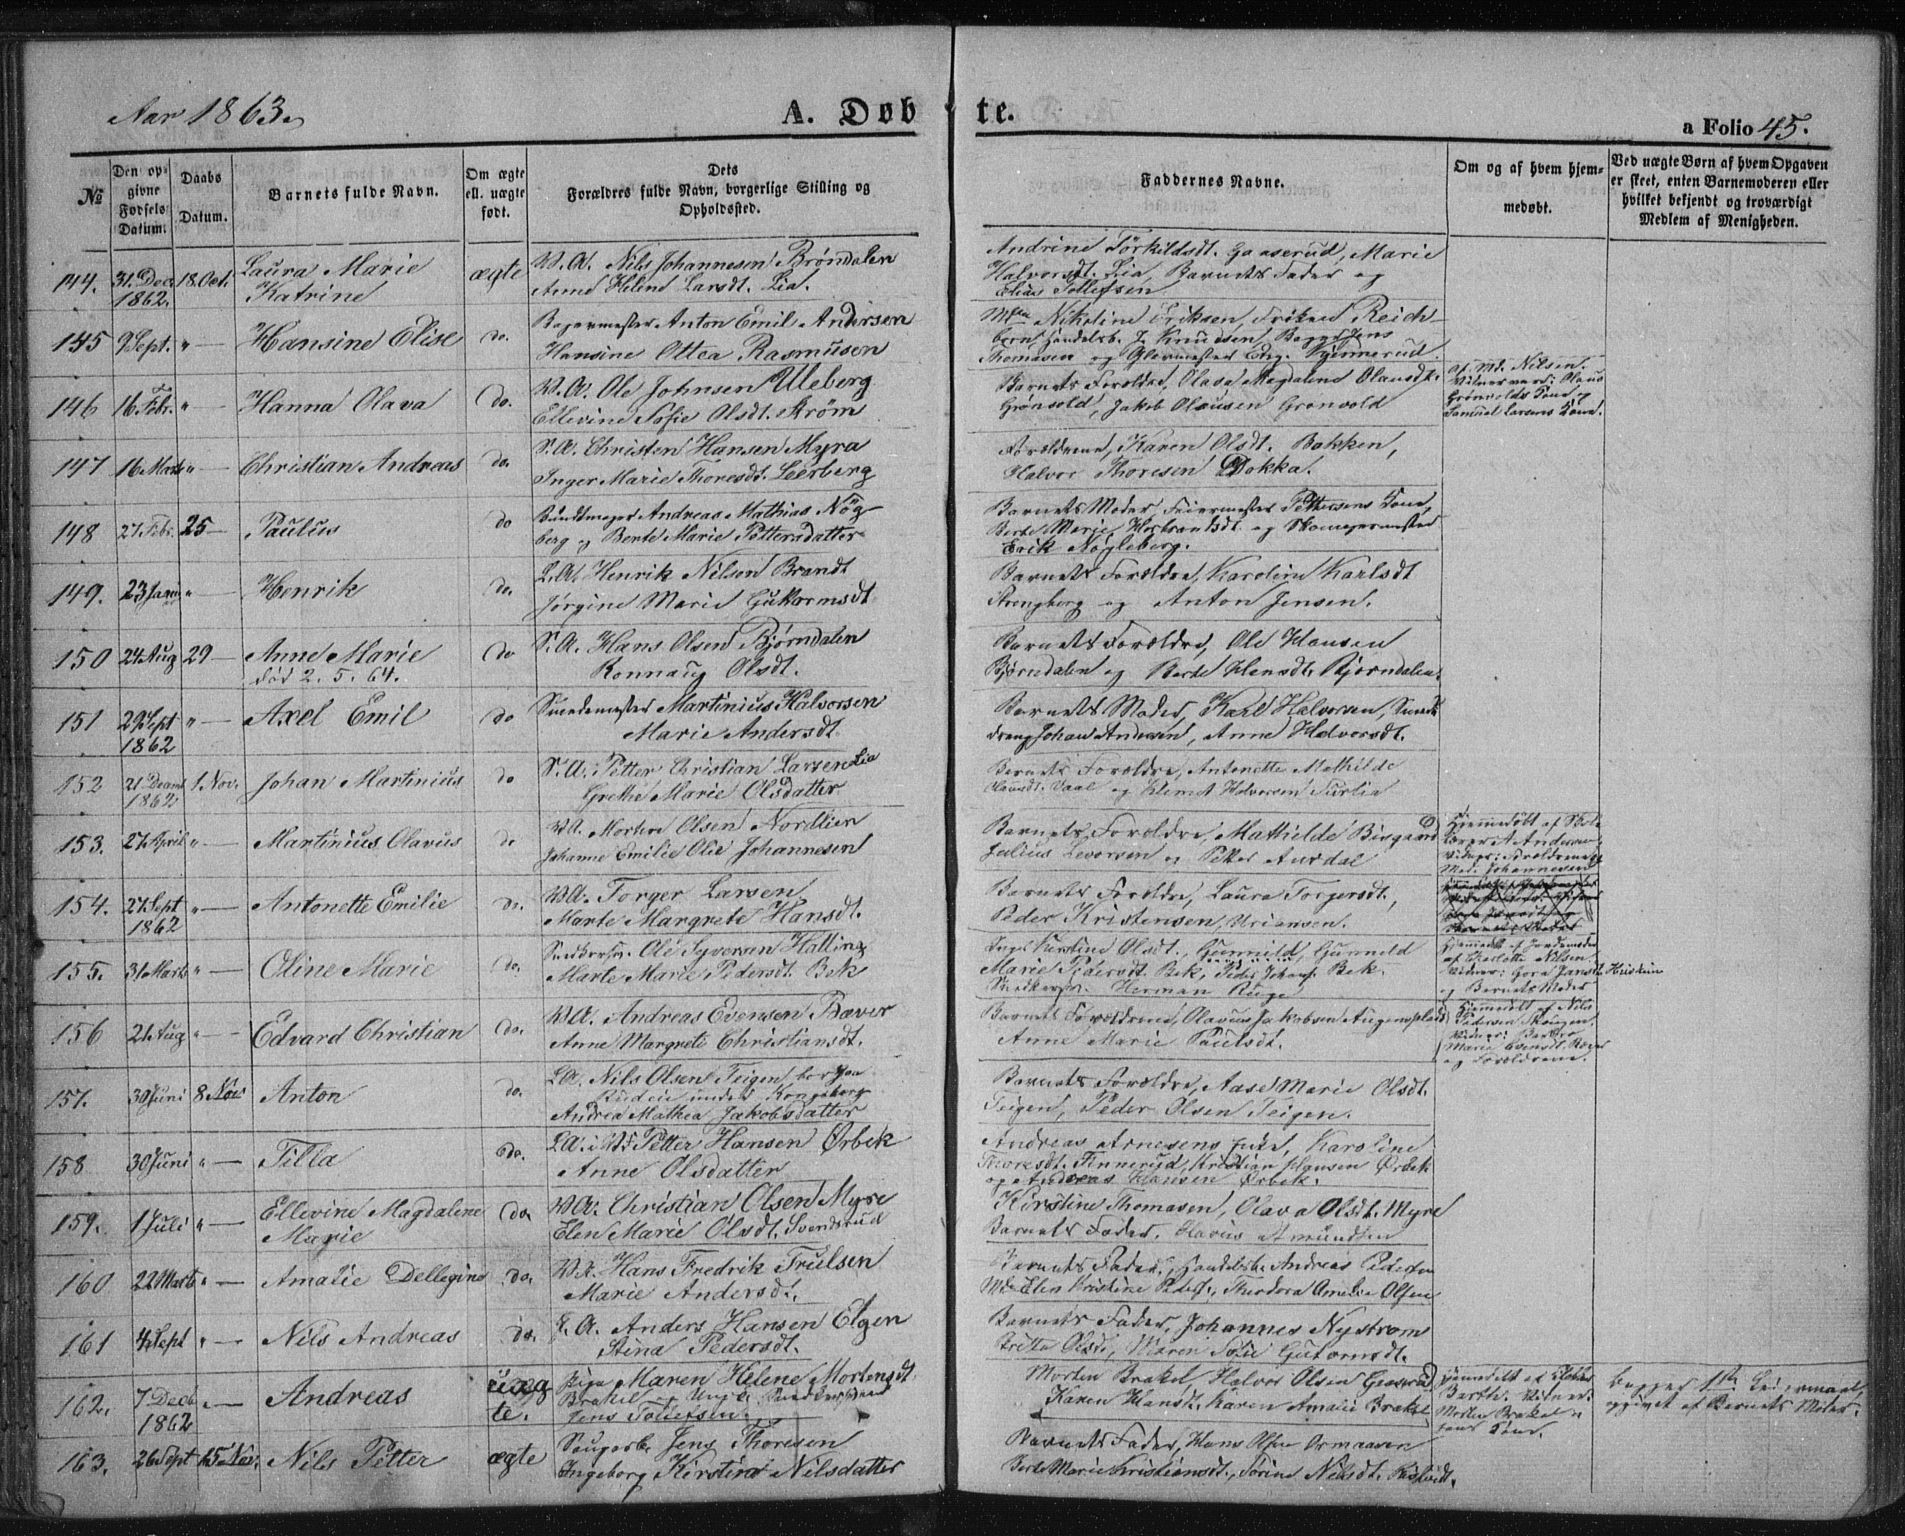 Aar 1863.
A. Døbte.
a Folio 45.
№
Den opgivne Fødsels Datum.
Daabs Datum.
Barnets fulde Navn.
Om ægte ell. uægte født.
Dets Forældres fulde Navn, borgerlige Stilling og Opholdssted.
Faddernes Navne.
Om og af hvem hjemmedøbt.
Ved uægte Børn af hvem Opgaven er skeet, enten Barnemoderen eller hvilket bekjendt og troværdigt Medlem af Menigheden.
144. 31. Dec. 1862. 18. Oct. Laura Marie Katrine ægte
N. A. Nils Johannesen Brøndalen
Anne Helene Larsdt. Lia.
Andrine Törkildsdt. Gaaserud, Marie
Halvorsdt. Lia, Barnets Fader og
Elias Tollefsen
145 9 Sept. " — Hansine Elise do.
Bagermester Anton Emil Andersen
Hansine Ottea Rasmusen
Nikoline Eriksen, Frøken Reich-
Handelsb. J. Knudsen, Jens
Thomasen og Glarmester Eng. Kjennerud.
146 16 Febr. " — Hanna Olava do.
N. A. Ole Johnsen Uleberg
Ellevine Sofie Olsdt. Strøm
Barnets Forældre, Olava Magdalene Olausdt.
Grønvold, Jakob Olausen Grønvold
af Md. Nilsen.
Vidner vare: Olaus
Grønvolds Kone og
Samuel Larsens Kone.
147 16 Marts " — Christian Andreas do.
S. A. Christen Hansen Myra
Inger Marie Thoresdt. Leerberg
Forældrene, Karen Olsdt. Bakken,
Halvor Thoresen Dokka.
148 27 Febr. 25 — Paulus do
Bundtmager Andreas Mathias Nög
berg og Berte Marie Pettersdatter
Barnets Moder, Feiermester Pettersens Kone,
Berte Marie og Skomagermester
Erik Nögleberg.
149. 23 Janu. " — Henrik do.
L. A. Henrik Nilsen Brandt
Jørgine Marie Guttormsdt
Barnets Forældre, Karoline Karlsdt
Strengberg og Anton Jensen.
150 24 Aug 29 — Anne Marie do
død 2. 5. 64.
S. A. Hans Olsen Bjørndalen
Ronnaug Olsdt.
Barnets Forældre, Ole Hansen
Bjørndalen og Berte Hansdt. Bjørndalen.
151 29 Sept 1862 " — Axel Emil do
Smedemester Martinius Halvorsen
Marie Andersdt.
Barnets Moder, Karl Halvorsen, Smede
dreng Johan Andersen, Anne Halvorsdt.
152 21 Decem 1862 1 Nov. Johan Martinius do
S. A. Petter Christian Larsen Lia
Grethe Marie Olsdatter
Barnets Forældre, Antonette Mathilde
Olausdt. Vaal og Klemet Halvorsen Furlia
153. 27 April " — Martinius Olavus do
N. A. Morten Olsen Nordlien
Johanne Emilie Olie Johannesen
Barnets Forældre, Mathilde Bisgaard
Julius Levorsen og Petter Aurdal
Hjemmedøbt af Sko
lærer A Andersen
Vidner: Forældrene og
Md. Johannesen
154. 27 Sept 1862 " — Antonette Emilie do.
N. A. Torger Larsen
Marte Margrete Hansdt.
Barnets Forældre, Laura Torgersdt.,
Peder Kristensen,
155. 31 Marts " — Oline Marie do.
Snedkersv. Ole Syversen Halling
Marte Marie Pedersdt. Bek
Kirstine Olsdt. Gunnild, Gunneld
Marie Pedersdt. Bek, Peder Johans. Bek.
Snedkersv. Herman Ruge
Hjemmedt. af Jordemoder
af Charlotte Nilsen
Vidner:
og Barnets Moder
156 21 Aug " — Edvard Christian do.
N. A. Andreas Evensen Bæver
Anne Margrete Christiansdt.
Barnets Forældrene, Olavus Jakobsen
Anne Marie Paulsdt.
Hjemmedt af Nils
Pedersen Skougen.
Vidner: Berthe
Maria Evensdt. Bæver
og Forældrene.
157. 30 Juni 8 Nov Anton do.
L. A. Nils Olsen Teigen
under Kongsberg
Andrea Mathea Jakobsdatter
Barnets Forældre, Aase Marie Olsdt.
Teigen, Peder Olsen Teigen.
158 30 Juni " — Tilla do.
Petter Hansen Ørbek
Anne Olsdatter
Andreas Arnesens Enke, Karoline
Thoresdt. Finnerud, Kristian Hansen Ørbek
og Andreas Hansen Ørbek.
159. 1 Juli " — Ellevine Magdalene Marie do.
N. A. Christian Olsen Myre
Elen Marie Olsdt. Svendsrud
Kirstine Thomasen, Olava Olsdt. Myre
Barnets Fader, Olavus Amundsen
160 22 Marts " — Amalie Dellegine do.
N. A. Hans Fredrik Trulsen
Marie Andersdt.
Barnets Fader, Handelsb. Andreas Pedersen
Elen Kristine Pedersdt., Theodora Amalie Olsen
161 4 Sept " — Nils Andreas do.
L. A. Anders Hansen Elgen
Stina Pedersdt.
Barnets Fader, Johannes Nystrøm
Britta Olsdt., Maren Sofie Gutormsdt.
162. 7 Decb 1862 " — Andreas uægte.
Pige Maren Helene Mortensdt.
Brakel og Ungk.
Jens Tollefsen.
Morten Brakel, Halvor Olsen Gaaserud
Karen Hansdt. Karen Amalie Brakel
Hjemmedt af Klokker
Barth. Vidner:
Morten Brakel og
hans Kone.
begges 1ste Leiermaal,
opgivet af Barnets Moder.
163. 26 Sept 15 Nov. Nils Petter ægte
Saugarb. Jens Thoresen
Ingeborg Kirstine Nilsdatter
Barnets Fader, Hans Olsen
Berte Marie Kristiansdt., Sørine Nilsdt.